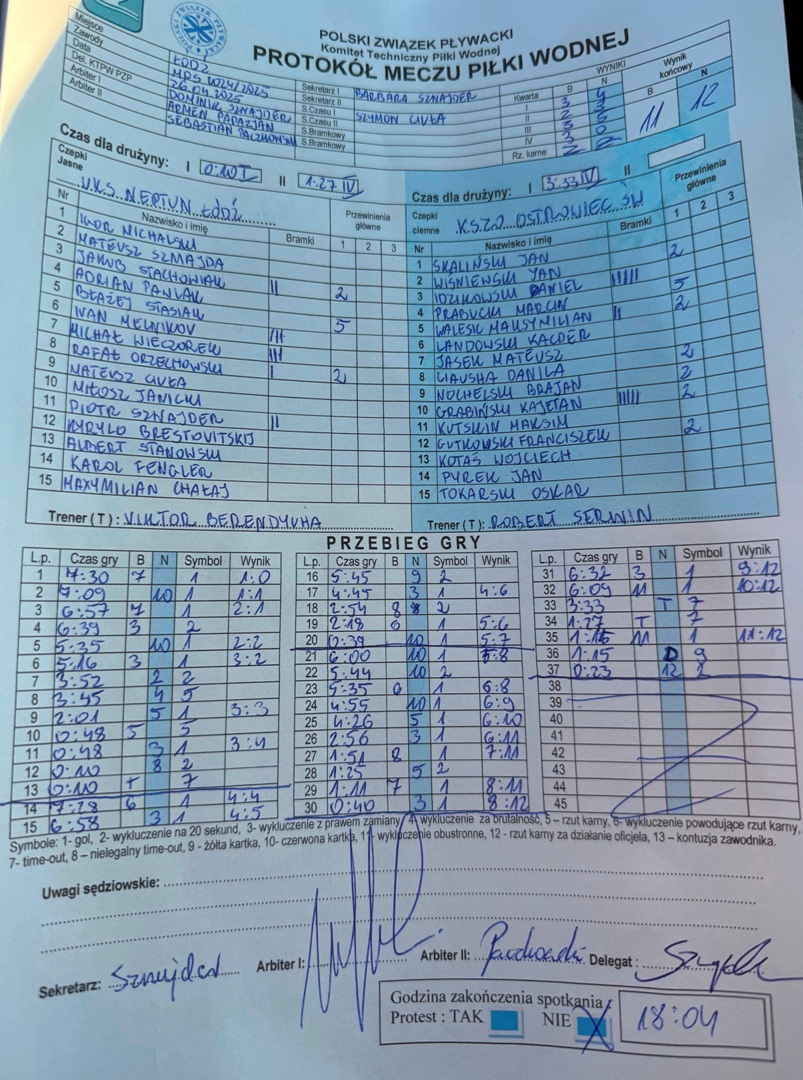 POLSKI ZWIĄZEK PŁYWACKI
Komitet Techniczny Piłki Wodnej
PROTOKÓŁ MECZU PIŁKI WODNEJ
Miejsce ŁÓDŹ Sekretarz I BARBARA SZNAJDER
Zawody MPS 2024/2025 Sekretarz II
Data 26.04.2025 S.Czasu I SZYMON CUKŁA
Del. KTPW PZP DOMINIK SZNAJDER S.Czasu II
Arbiter I ARMEN PAPAZJAN S.Bramkowy
Arbiter II SEBASTIAN S.Bramkowy
WYNIKI Wynik końcowy
Kwarta B N B N
I 3 4 11 12
II 2
III 3
IV 3 0
Rz. karne
Czas dla drużyny: I 0:10 I II 1:27 IV
Czas dla drużyny: I 3:33 IV II
Czepki Jasne U.K.S. NEPTUN ŁÓDŹ
Nr Nazwisko i imię Bramki Przewinienia główne 1 2 3
1 IGOR MICHALSKI
2 MATEUSZ SZMAJDA
3 JAKUB STACHOWIAK II
4 ADRIAN PAWLAK 2
5 BŁAŻEJ STASIAK
6 IVAN MELNIKOV III 5
7 MICHAŁ WIECZOREK III
8 RAFAŁ ORZECHOWSKI I
9 MATEUSZ CUKŁA 2
10 MIŁOSZ JANICKI
11 PIOTR SZNAJDER II
12 KYRYLO BRESTOVITSKIJ
13 ALBERT STANOWSKI
14 KAROL FENGLER
15 MAXYMILIAN CHAŁAJ
Trener (T): VIKTOR BERENDYUHA
Czepki ciemne KSZO OSTROWIEC ŚW
Nr Nazwisko i imię Bramki Przewinienia główne 1 2 3
1 SKALIŃSKI JAN
2 WIŚNIEWSKI JAN 2
3 IDZIKOWSKI DANIEL IIIII
4 PRABUCKI MARCIN 5
5 WALESIC MAKSYMILIAN II 2
6 LANDOWSKI KACPER
7 JASEK MATEUSZ
8 LIAUSHA DANILA 2
9 NOCHELSKI BRAJAN 2
10 GRABIŃSKI KAJETAN IIIII 2
11 KUTSKIN MAKSIM
12 GUTKOWSKI FRANCISZEK 2
13 KOTAŚ WOJCIECH
14 PYREK JAN
15 TOKARSKI OSKAR
Trener (T): ROBERT SERWIN
PRZEBIEG GRY
L.p. Czas gry B N Symbol Wynik
1 7:30 7 1 1:0
2 7:09 10 1 1:1
3 6:57 7 1 2:1
4 6:39 3 2
5 5:35 10 1 2:2
6 5:16 3 1 3:2
7 3:52 2 2
8 3:45 4 5
9 2:01 5 1 3:3
10 0:48 5 5
11 0:48 3 1 3:4
12 0:10 8 2
13 0:10 T 7
14 7:28 6 1 4:4
15 6:58 3 1 4:5
L.p. Czas gry B N Symbol Wynik
16 5:45 9 2
17 4:45 3 1 4:6
18 2:54 8 2
19 2:18 6 1 5:6
20 0:39 10 1 5:7
21 6:00 10 1 5:8
22 5:44 10 2
23 5:35 6 1 6:8
24 4:55 10 1 6:9
25 4:26 5 1 6:10
26 2:56 3 1 6:11
27 1:51 8 1 7:11
28 1:25 5 2
29 1:11 7 1 8:11
30 0:40 3 1 8:12
L.p. Czas gry B N Symbol Wynik
31 6:32 3 1 9:12
32 6:09 11 1 10:12
33 3:33 T 7
34 1:27 T 7
35 1:15 11 1 11:12
36 1:15 D 9
37 0:23 12 2
38
39
40
41
42
43
44
45
Symbole: 1- gol, 2- wykluczenie na 20 sekund, 3- wykluczenie z prawem zamiany, 4- wykluczenie za brutalność, 5 – rzut karny, 6- wykluczenie powodujące rzut karny,
7- time-out, 8 – nielegalny time-out, 9 - żółta kartka, 10- czerwona kartka, 11- wykluczenie obustronne, 12 - rzut karny za działanie oficjela, 13 – kontuzja zawodnika.
Uwagi sędziowskie:
Sekretarz: Sznajder Arbiter I: Arbiter II: Delegat:
Godzina zakończenia spotkania
Protest : TAK NIE X 18:04